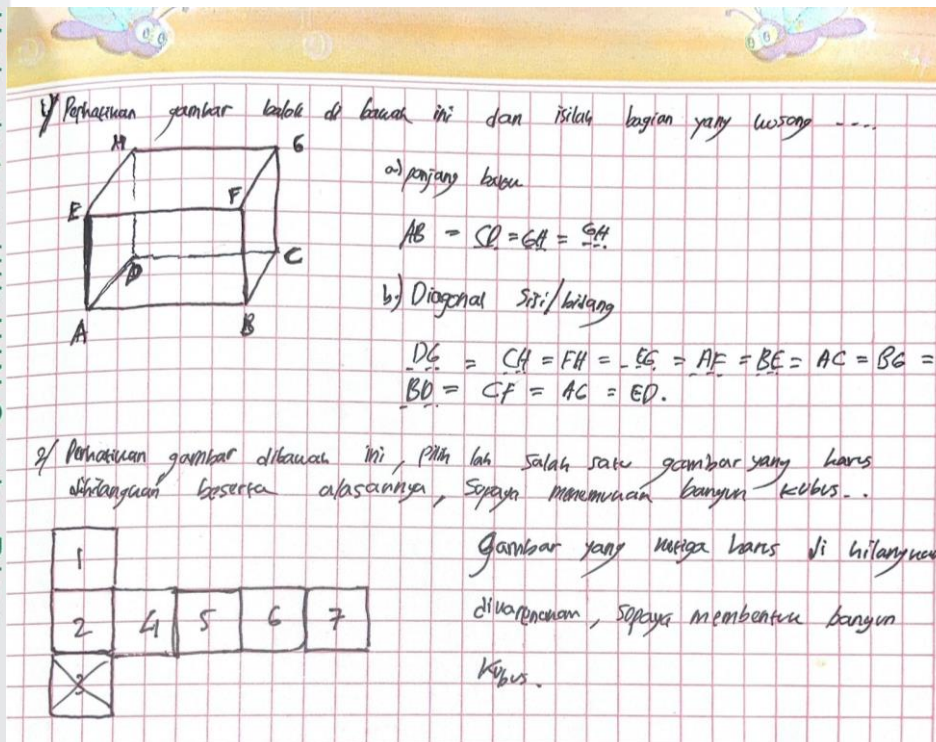 1) Perhatikan gambar balok di bawah ini dan isilah bagian yang kosong ....
H G
a) panjang balok
E F
AB = CD = GH = GH
D C
b.) Diagonal sisi/bidang
A B
DG = CH = FH = EG = AF = BE = AC = BG =
BD = CF = AG = ED.
2/ Perhatikan gambar dibawah ini, pilih lah salah satu gambar yang harus
dihilangkan beserta alasannya, sopaya menemukan bangun kubus...
1
Gambar yang ketiga harus di hilangkan
2 4 5 6 7
dikarenakan, sopaya membentuk bangun
3
kubus.